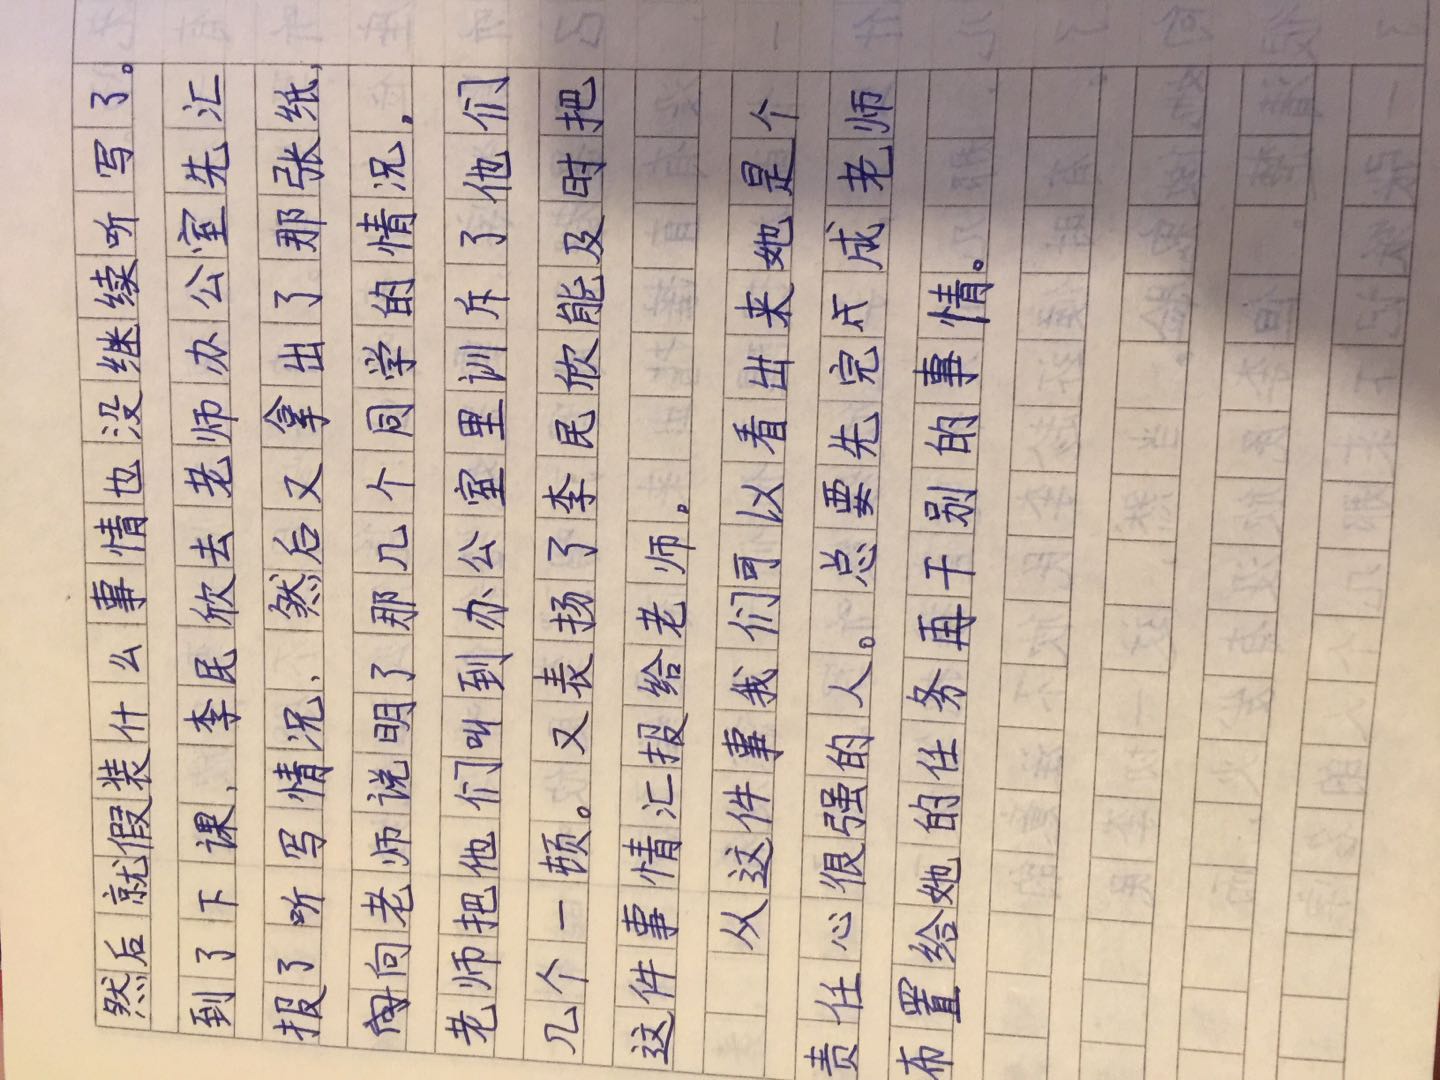 然后就假装什么事情也没继续听写了。
到了下课，李民欣去老师办公室先汇
报了听写情况，然后又拿出了那张纸，
向老师说明了那几个同学的情况，
老师把他们叫到办公室里训斥了他们
几个一顿。又表扬了李民欣能及时把
这件事情汇报给老师。
从这件事我们可以看出来她是个
责任心很强的人。总要先完成老师
布置给她的任务再干别的事情。